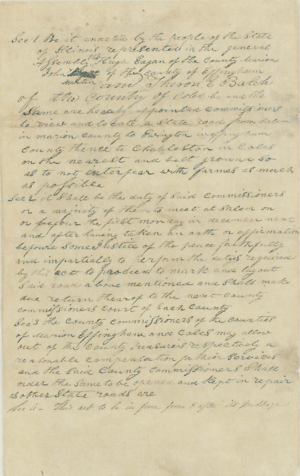 Sec 1 Be it enacted by the people of the State
of Illinois represented in the general
Assembly That Hugh Eagan of the County Marion
John of the County of Effingham
and Theron E Balch
of the County of Coles be and the
Same are hereby appointed commissioners
to view and locate a State road from Salem
in marion county to Ewington Effingham
County thence to Charleston in Coles
on the nearest and best ground so
as to not enterfear with farmes as much
as possible
Sec 2 it Shall be the duty of Said commissioners
or a majority of them to meet at Salem on
or before the first monday in december next
and after having taken an oath or affirmation
before some Justice of the peace faithfully
and impartially to perform the duties required
by this act to proceed to mark and layout
Said road above mentioned and Shall make
due return thereof to the next County
commissioners Court of Each County
Sec 3 the County commissioners of the Counties
of marion Effingham and Coles may allow
out of the County Treasurys respectively a
reasonable compensation for their Services
and the Said County commissioners Shall
order the Same to be opened and Kept in repair
as other State roads are
Sec 4 This act to be in force from & after its passage